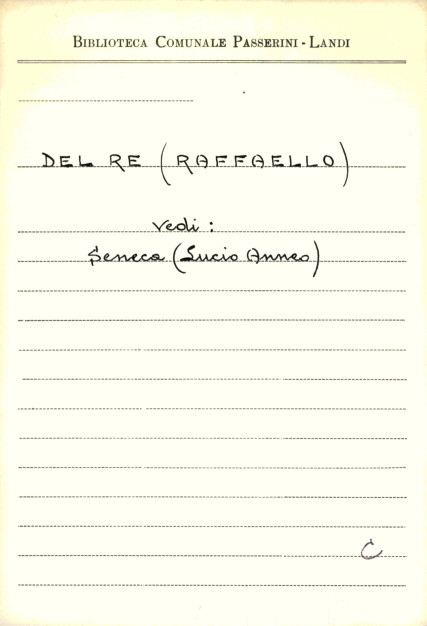 BIBLIOTECA COMUNALE PASSERINI - LANDI
DEL RE (RAFFAELLO)
Vedi :
Seneca (Lucio Anneo)
C